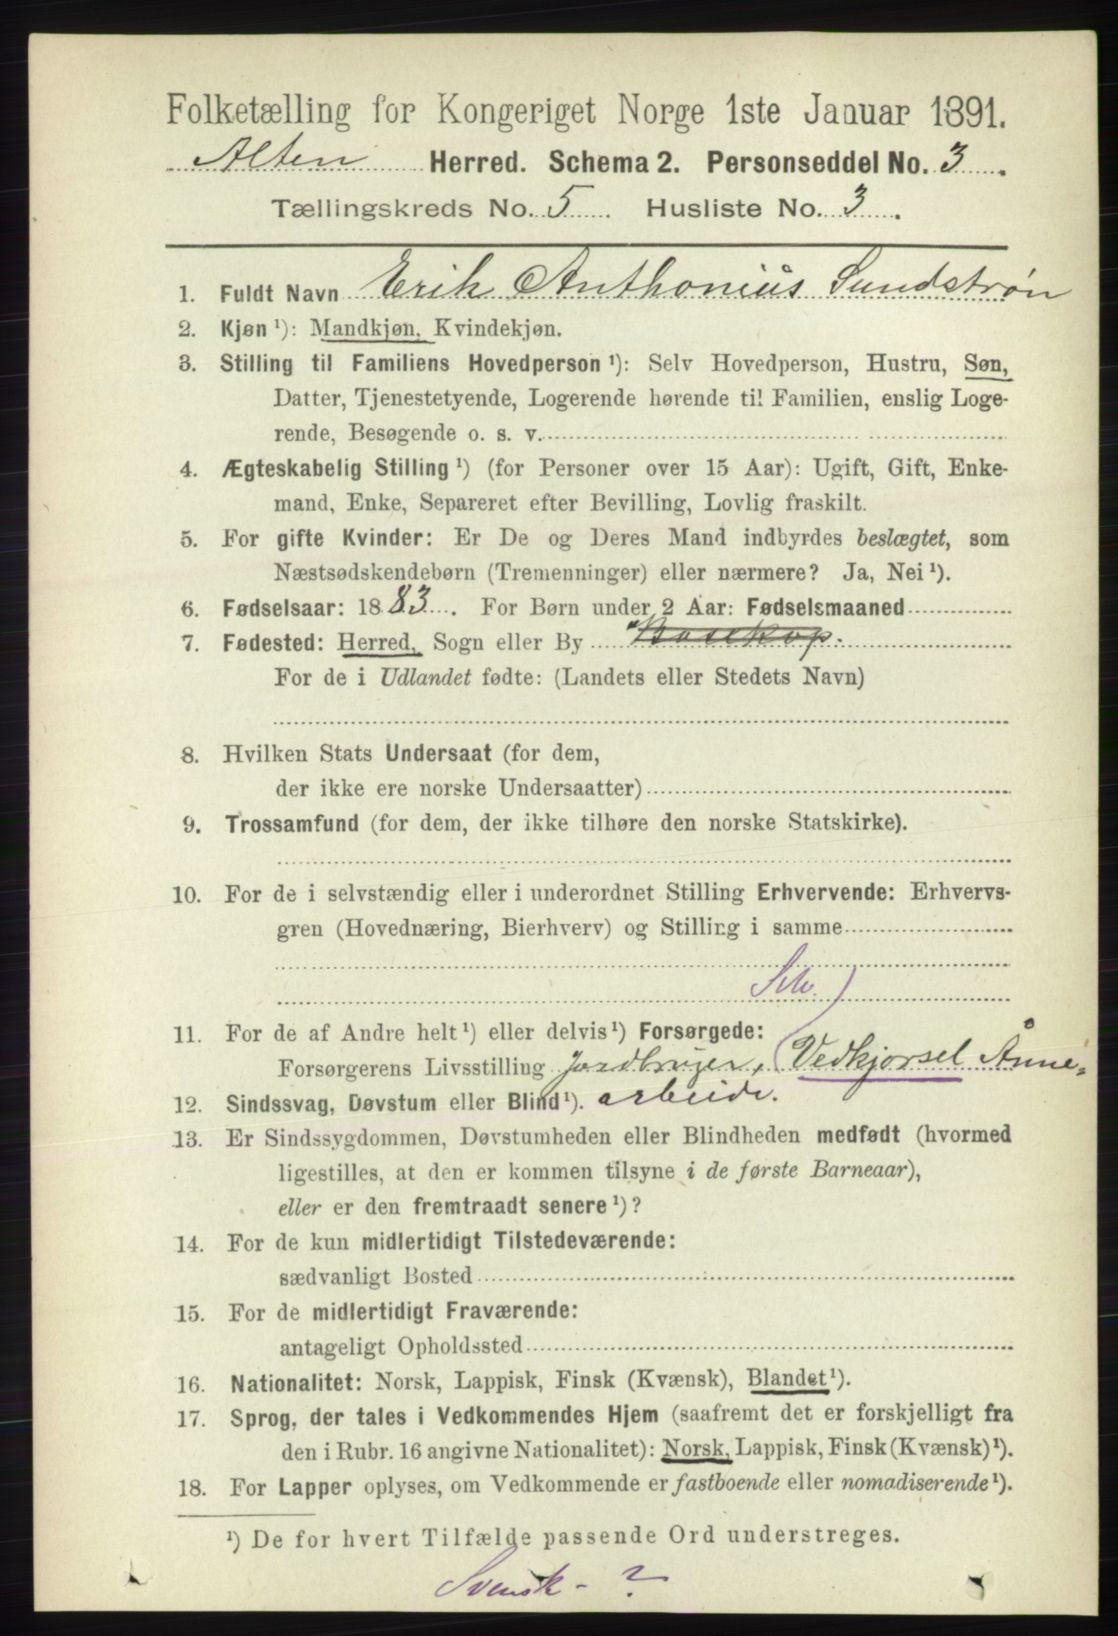 Folketælling for Kongeriget Norge 1ste Januar 1891.
Alten Herred. Schema 2. Personseddel No. 3
Tællingskreds No. 5 Husliste No. 3
1. Fuldt Navn Erik Anthonius Sundstrøn
2. Kjøn ¹): Mandkjøn, Kvindekjøn.
3. Stilling til Familiens Hovedperson ¹): Selv Hovedperson, Hustru, Søn,
Datter, Tjenestetyende, Logerende hørende til Familien, enslig Loge-
rende, Besøgende o. s. v.
4. Ægteskabelig Stilling ¹) (for Personer over 15 Aar): Ugift, Gift, Enke-
mand, Enke, Separeret efter Bevilling, Lovlig fraskilt.
5. For gifte Kvinder: Er De og Deres Mand indbyrdes beslægtet, som
Næstsødskendebørn (Tremenninger) eller nærmere? Ja, Nei ¹).
6. Fødselsaar: 1883. For Børn under 2 Aar: Fødselsmaaned
7. Fødested: Herred, Sogn eller By Bosekop.
For de i Udlandet fødte: (Landets eller Stedets Navn)
8. Hvilken Stats Undersaat (for dem,
der ikke ere norske Undersaatter)
9. Trossamfund (for dem, der ikke tilhøre den norske Statskirke).
10. For de i selvstændig eller i underordnet Stilling Erhvervende: Erhvervs-
gren (Hovednæring, Bierhverv) og Stilling i samme
Selv.)
11. For de af Andre helt ¹) eller delvis ¹) Forsørgede:
Forsørgerens Livsstilling Jordbruger, (Vedkjørsel Ånne=
12. Sindssvag, Døvstum eller Blind ¹). arbeide.
13. Er Sindssygdommen, Døvstumheden eller Blindheden medfødt (hvormed
ligestilles, at den er kommen tilsyne i de første Barneaar),
eller er den fremtraadt senere ¹)?
14. For de kun midlertidigt Tilstedeværende:
sædvanligt Bosted
15. For de midlertidigt Fraværende:
antageligt Opholdssted
16. Nationalitet: Norsk, Lappisk, Finsk (Kvænsk), Blandet ¹).
17. Sprog, der tales i Vedkommendes Hjem (saafremt det er forskjelligt fra
den i Rubr. 16 angivne Nationalitet): Norsk, Lappisk, Finsk (Kvænsk) ¹).
18. For Lapper oplyses, om Vedkommende er fastboende eller nomadiserende ¹).
¹) De for hvert Tilfælde passende Ord understreges.
Svensk - ?